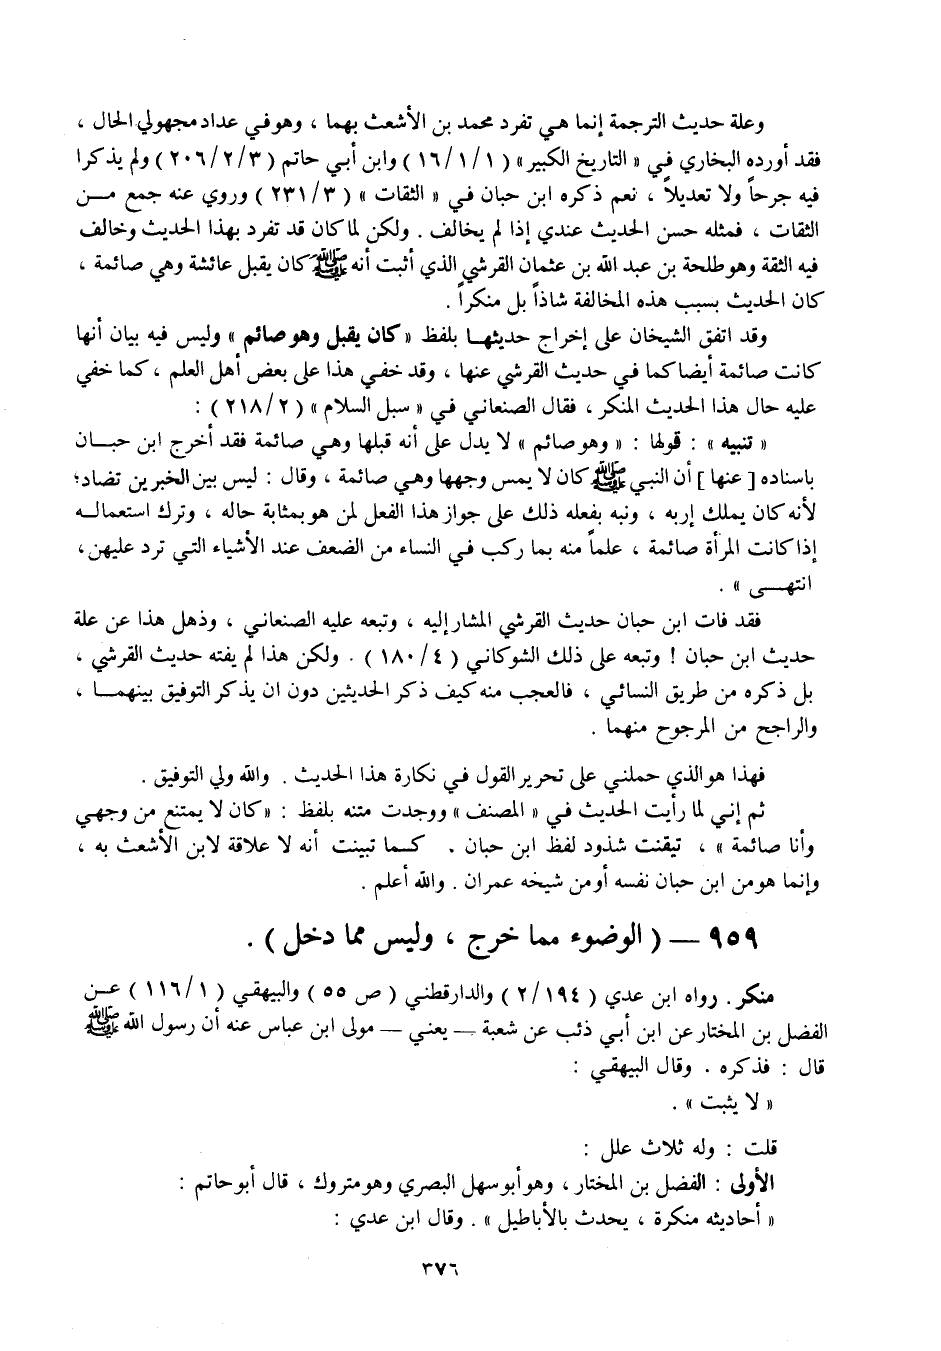 وعلة حديث الترجمة إنما هي تفرد محمد بن الأشعث بهما ، وهو في عداد مجهولي الحال ،
فقد أورده البخاري في « التاريخ الكبير » ( ١ /١ /١٦ ) وابن أبي حاتم ( ٣ /٢ /٢٠٦ ) ولم يذكرا
فيه جرحاً ولا تعديلاً ، نعم ذكره ابن حبان في « الثقات » ( ٣ /٢٣١ ) وروي عنه جمع مــن
الثقات ، فمثله حسن الحديث عندي إذا لم يخالف . ولكن لما كان قد تفرد بهذا الحديث وخالف
فيه الثقة وهو طلحة بن عبد الله بن عثمان القرشي الذي أثبت أنه ﷺ كان يقبل عائشة وهي صائمة ،
كان الحديث بسبب هذه المخالفة شاذاً بل منكراً .
وقد اتفق الشيخان على إخراج حديثهــا بلفظ « كان يقبل وهو صائم » وليس فيه بيان أنها
كانت صائمة أيضا كما في حديث القرشي عنها ، وقد خفي هذا على بعض أهل العلم ، كما خفي
عليه حال هذا الحديث المنكر ، فقال الصنعاني في « سبل السلام » ( ٢ /٢١٨ ) :
« تنبيه » : قولها : « وهو صائم » لا يدل على أنه قبلها وهي صائمة فقد أخرج ابن حبــان
باسناده [ عنها ] أن النبي ﷺ كان لا يمس وجهها وهي صائمة ، وقال : ليس بين الخبرين تضاد؛
لأنه كان يملك إربه ، ونبه بفعله ذلك على جواز هذا الفعل لمن هو بمثابة حاله ، وترك استعمالــه
إذا كانت المرأة صائمة ، علماً منه بما ركب في النساء من الضعف عند الأشياء التي ترد عليهن ،
انتهــى » .
فقد فات ابن حبان حديث القرشي المشار إليه ، وتبعه عليه الصنعاني ، وذهل هذا عن علة
حديث ابن حبان ! وتبعه على ذلك الشوكاني ( ٤ /١٨٠ ) . ولكن هذا لم يفته حديث القرشي ،
بل ذكره من طريق النسائي ، فالعجب منه كيف ذكر الحديثين دون ان يذكر التوفيق بينهمــا ،
والراجح من المرجوح منهما .
فهذا هو الذي حملني على تحرير القول في نكارة هذا الحديث . والله ولي التوفيق .
ثم إني لما رأيت الحديث في « المصنف » ووجدت متنه بلفظ : « كان لا يمتنع من وجهي
وأنا صائمة » ، تيقنت شذود لفظ ابن حبان . كــما تبينت أنه لا علاقة لابن الأشعث به ،
وإنما هو من ابن حبان نفسه أو من شيخه عمران . والله أعلم .
٩٥٩ — ( الوضوء مما خرج ، وليس مما دخل ) .
منكر . رواه ابن عدي ( ١٩٤ /٢ ) والدارقطني ( ص ٥٥ ) والبيهقي ( ١ /١١٦ ) عــن
الفضل بن المختار عن ابن أبي ذئب عن شعبة — يعني — مولى ابن عباس عنه أن رسول الله ﷺ
قال : فذكره . وقال البيهقي :
« لا يثبت » .
قلت : وله ثلاث علل :
الأولى : الفضل بن المختار ، وهو أبو سهل البصري وهو متروك ، قال أبو حاتم :
« أحاديثه منكرة ، يحدث بالأباطيل » . وقال ابن عدي :
٣٧٦